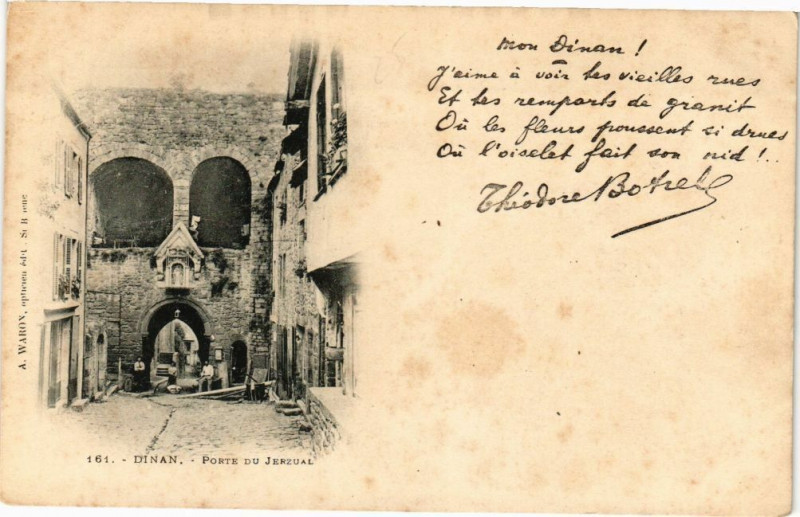 mon Dinan !
J'aime à voir tes vieilles rues
Et tes remparts de granit
Où les fleurs poussent si drues
Où l'oiselet fait son nid !..
Théodore Botrel
A. WARON, opticien édit. St B
161. - DINAN. - PORTE DU JERZUAL